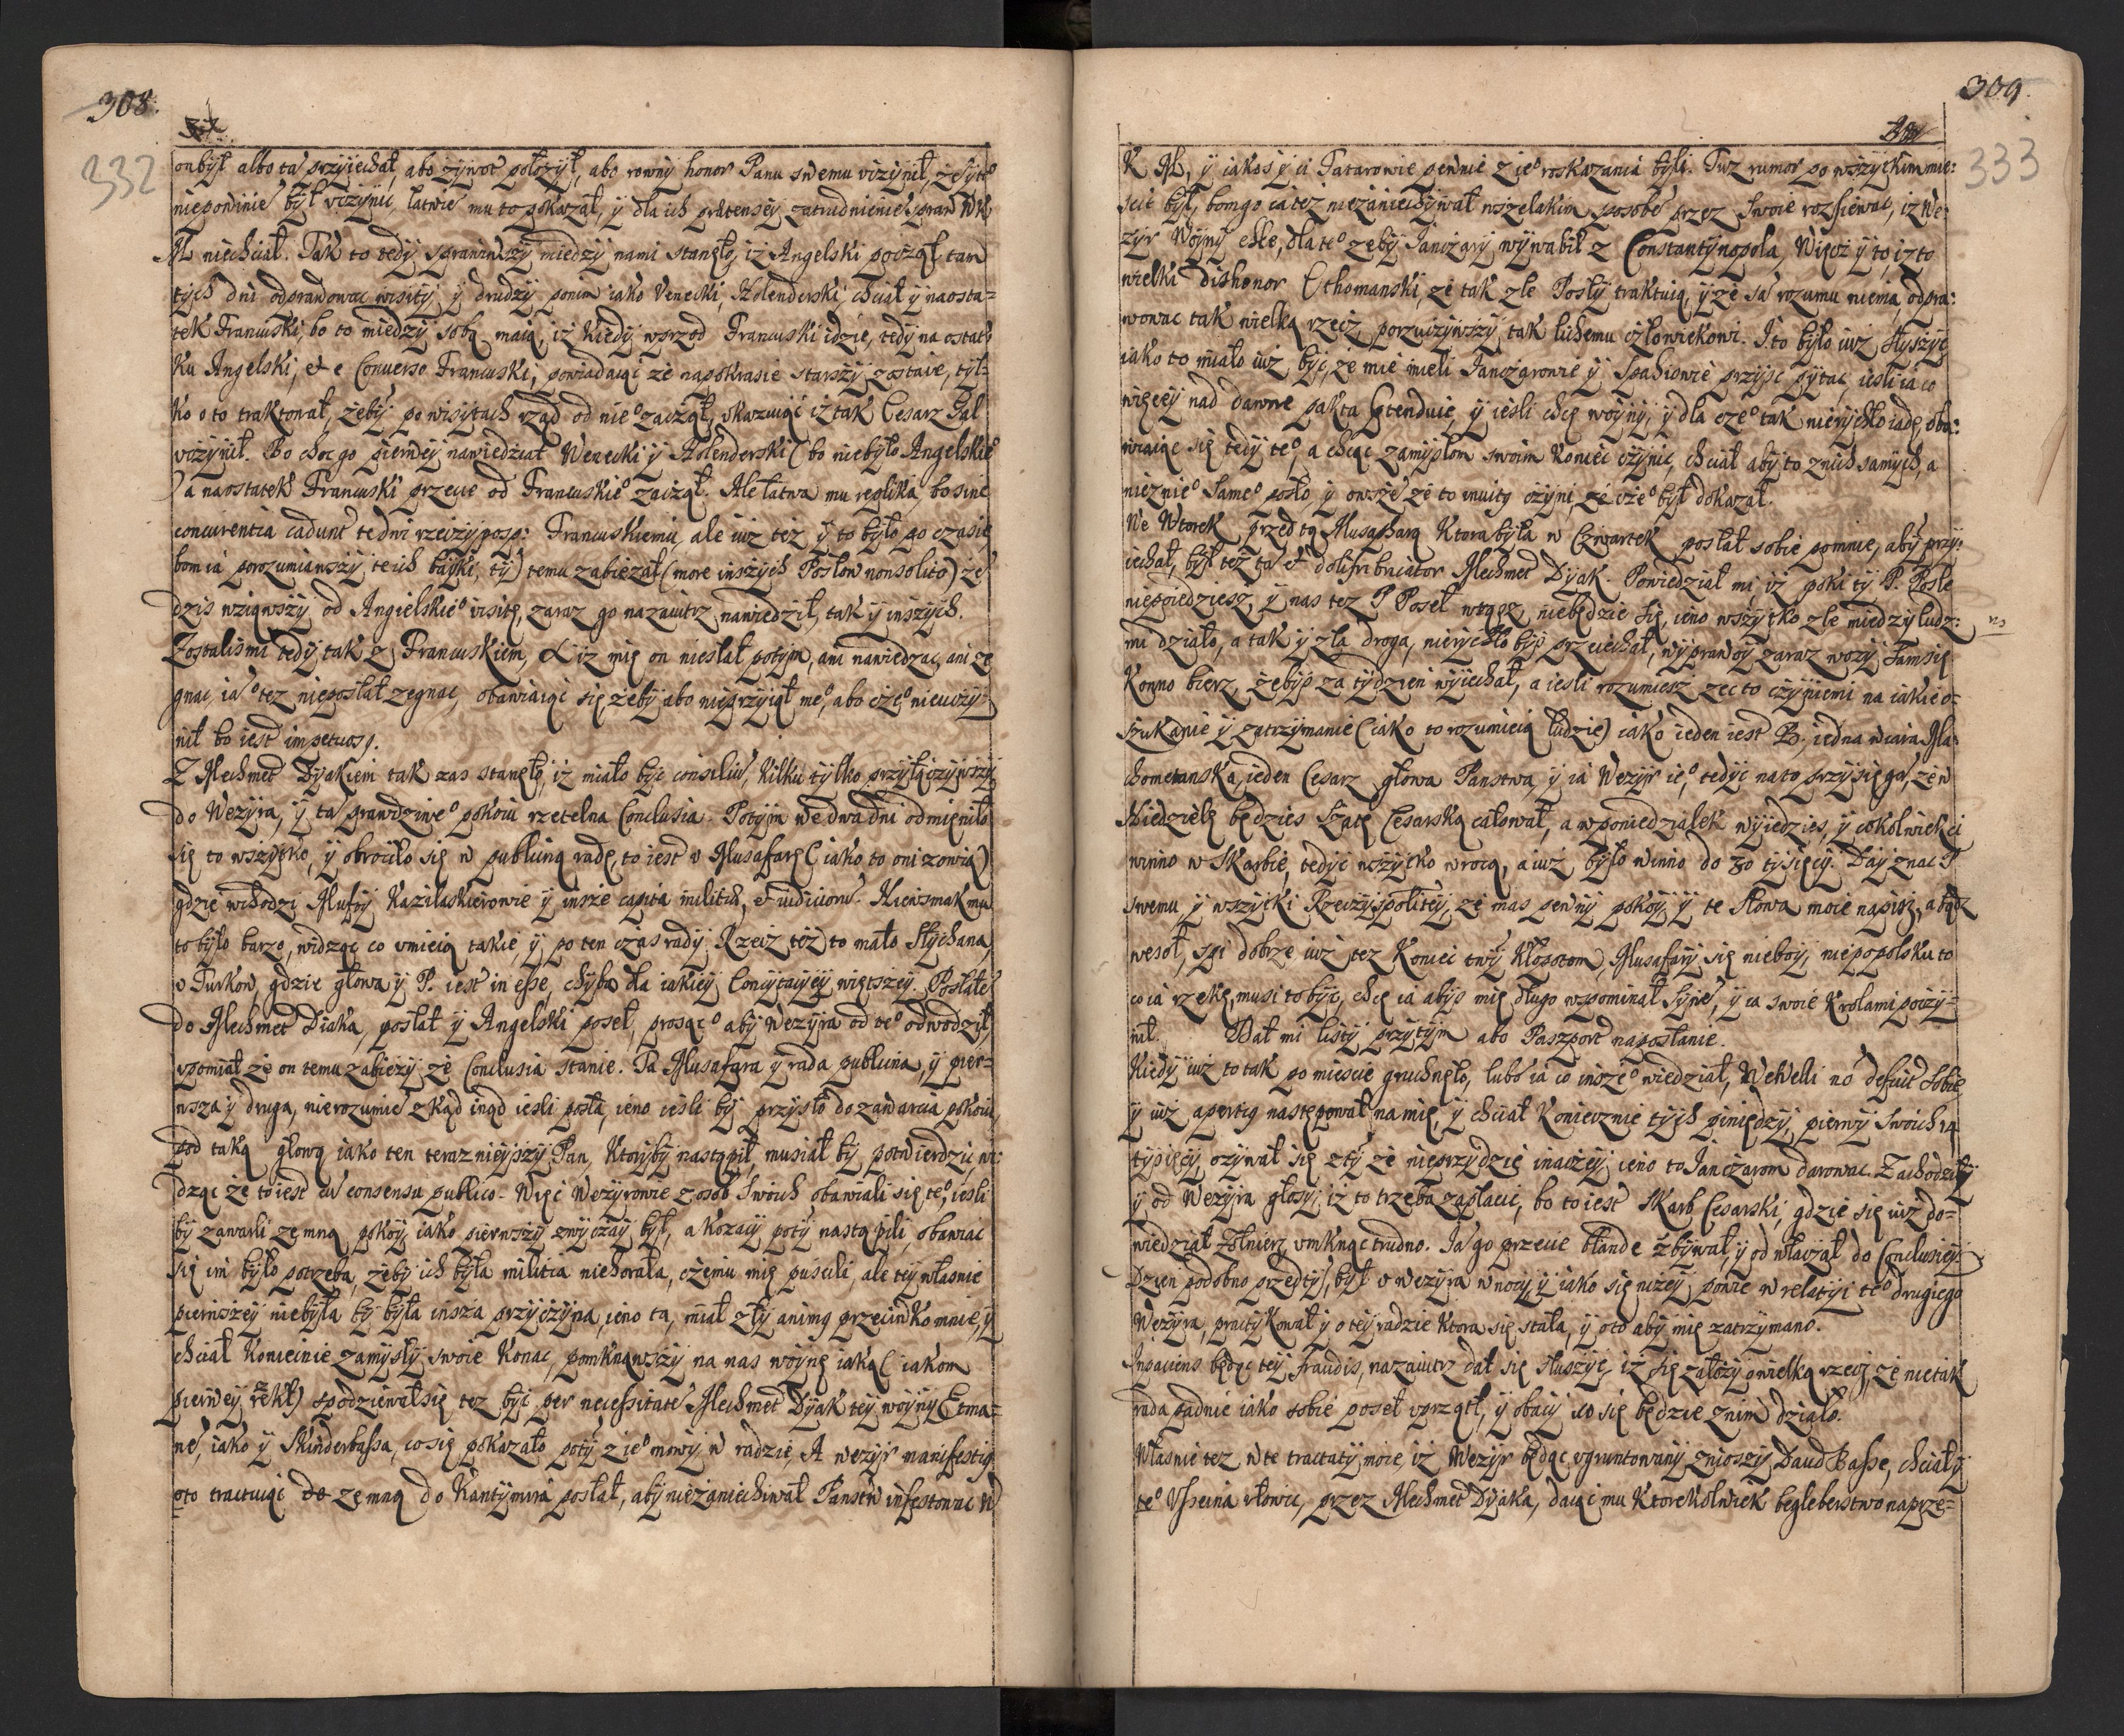 308.
332
on był albo tā przyiechał, abo zywot położył, abo rowny honor Panu swemu vczynił, że ÿ te°
niepowinie był vczynic, łatwie mu to pokazał, ÿ dla ich prætensÿ zatrudnienie spraw WK
M niechciał. Tak to tedÿ sprawiwszÿ miedzÿ nami stanęło, iż Angelski począł tam
tÿch dni odprawowac wisitÿ, ÿ drudzÿ ponim iako Venecki, Holenderski, chciał ÿ naosta=
tek Francuski, bo to miedzÿ sobą maią, iż kiedÿ wprzod Francuski idzie, tedÿ na ostat=
ku Angelski, et e Conuerso Francuski, powiadaiąc że napokrasie starszÿ zostaie, tÿl=
ko o to traktował, żebÿ po wisÿtach rząd od nie° zaczął, vkazuiąc iż tak Cesarz Gal
vczÿnił. Bo choc go pierwéÿ nawiedzał Wenecki ÿ Holenderski (bo niebÿło Angelskie°
) a naostatek Francuski przecie od Francuskie° zaczął. Ale łatwa mu replika, bo sine
concurentia cadunt te dni rzeczÿposp: Francuskiemu, ale iuż też ÿ to bÿło po czasie
bom ia porozumiawszÿ te ich baÿki, tÿ) temu zabieżał (more inszÿch Posłow nonsolito) że
dzis wziąwszÿ od Angielskie° visitę, zaraz go nazaiutrz nawiedził, tak ÿ inszÿch.
Zostalismi tedÿ tak z Francuskiem, iż mię on niesłał potÿm, ani nawiedzac, ani że
gnac, ia° tez nieposłał zegnac, obawiaiąc się żebÿ abo nieprzÿiął me°, abo cze° nieuczÿ=
nił bo iest impetuosq.
Z Mechmet Dÿakiem tak zas stanęło, iż miało bÿc consiliū, kilku tÿlko przÿłączÿwszÿ
do Wezÿra, ÿ tā prawdziwe° pokoiu rzetelna Conclusia. Potÿm we dwa dni odmieniło
się to wszÿtko, ÿ obrociło się w publiczną radę, to iest v Musafarę (iako to oni zowią)
gdzie wchodzi Mufty Kazilaskierowie ÿ insze capita militiæ, et iudiciorū. Nieysmak mu
to bÿło barzo, widząc co vmieią takie, ÿ po ten czas radÿ. Rzecz też to mało słÿchana,
v Turkow, gdzie głowa ÿ P. iest in esse, chÿba dla iakieÿ Concÿtacÿeÿ więtszeÿ. Posłałē
do Mechmet Diaka, posłał ÿ Angelski poseł, prosąc° abÿ Wezÿra od te° odwodził,
vpomniał że on temu zabieżÿ, że Conclusia stanie. Ta Musafara ÿ rada publicna, ÿ pier=
wsza ÿ druga, nierozumiē zkąd inąd iesli poszła, ieno iesli bÿ przÿszło do zawarcia pokoiu,
pod taką głową iako ten teraznieÿszÿ Pan, ktorÿbÿ nastąpił, musiał bÿ potwierdzic, wi
dząc że to iest cū consensu publico. Więc Wezÿrowie z osob swoich obawiali się te°, iesli
bÿ zawarli ze mną pokoÿ, iako pierwszÿ zwÿczaÿ bÿł, a kozacÿ potÿ nastąpili, obawiac
się im bÿło potrzeba, żebÿ ich bÿła militia niehorała, czemu mię puscili, ale teÿ własnie
pierwszeÿ niebÿła bÿ bÿła insza przÿczÿna, ieno ta, miał złÿ animq przeciwko mnie, ÿ
chciał koniecinie zamÿsłÿ swoie konac, pomknąwszÿ na nas woÿnę iaką (iakom
pierweÿ rzekł) spodziewał się tez bÿc per necessitatē Mechmet Dÿak teÿ woÿnÿ Etma=
nē, iako ÿ Skinderbassa, co się pokazało potÿ z ie° mowÿ w radzie. A wezÿr manifestiq
oto tractuiąc ze mną do Kantÿmira posłał, abÿ niezaniechiwał Panstw infestowac W
309.
333
K M, ÿ iakosÿ ci Tatarowie pewnie z ie° roskazania bÿli. Tuż rumor po wszÿtkim mie:
scie bÿł, bom go ia też niezaniechÿwał wszelakim sposobē przez swoie rozsiewac, iż We:
zÿr woÿnÿ chce, dla te° zebÿ Janczarÿ wÿwabił z Constantÿnopola, Więc ÿ to, iz to
wielki dishonor Othomanski, że tak zle Posłÿ traktuią, ÿ że sā rozumu niema, odpra:
wowac tak wielką rzecz, porzucizÿwszÿ tak lichemu człowiekowi. I to bÿło iuż słÿszÿc
iako to miało iuż bÿc, ze mie mieli Janczarowie ÿ Spahiowie przÿsc pÿtac, iesli ia co
więceÿ nad dawne pakta prętenduię, ÿ iesli chcę woÿnÿ, ÿ dla cze° tak nierÿchło iadę, oba:
wiaiąc się tedÿ te°, a chcąc zamÿsłom swoim koniec czÿnic, chciał abÿ to z nich samÿch, a
nie z nie° same° poszło, ÿ owszē że to inuitq czÿni, że cze° bÿł dokazał.
We Wtorek przed tą Musapharą ktora bÿła w Czwartek posłał sobie pomnie, abÿ przÿ:
iechał, bÿł też tā Mechmet Dÿak. Powiedział mi, iż poki tÿ P. Posle
niepoiedziesz, ÿ nas tez P Poseł wrącz niebędzie się, ieno wszÿtko zle miedzÿ ludz:
mi działo, a tak ÿ zła droga, nierÿchło bÿs przeiechał, wÿprawoÿ zaraz wozÿ, sam się
konno bierz, żebÿs za tÿdzien wÿiechał, a iesli rozumiesz żec to czÿniemi na iakie o=
szukanie ÿ zatrzÿmanie (iako to rozumieią ludzie) iako ieden iest B. iedna wiara Ma
hometanska, ieden Cesarz głowa Panstwa, ÿ ia Wezÿr ie°, tedÿc na to przÿsięgā, że w
Niedzielę będzies szatę Cesarską całował, a w poniedziałek wÿiedzies, ÿ cokolwiek ci
winno w Skarbie, tedÿc wszÿtko wrocą, a iuż bÿło winno do 30 tÿsięcÿ. Daÿ znac P
swemu ÿ wszÿtki Rzeczÿpospoliteÿ, że mas pewnÿ pokoÿ, ÿ te słowa moie napisz, a bądz
wesoł, spi dobrze iuż tez koniec twÿ kłopotom, Musafarÿ się nieboÿ, niepopolsku to
co ia rzekę, musi to bÿc, chcę ia abÿs mię długo wspominał sÿnē, ÿ ia swoie Krolami poczÿ=
nił. Dał mi listÿ przÿtÿm abo Paszport na posłanie.
Kiedÿ iuż to tak po miescie gruchnęło, lubo ia co insze° wiedział, Wewelli nō defuit sobie
ÿ iuż apertiq następował na mię, ÿ chciał koniecznie tÿch pieniędzÿ, pierwÿ swoich 19
tÿsięcÿ, ozÿwał się z tÿ że nieprzÿdzie inaczeÿ, ieno to Janczarom darowac. Zachodziłÿ
ÿ od Wezÿra głosÿ, iż to trzeba zapłacic, bo to iest Skarb Cesarski, gdzie się iuż do=
wiedział żołnierz, vmknąc trudno. Ja go przecie blande zbÿwał, ÿ odwłaczał do Conclusieÿ.
Dzien podobno przedtÿ, bÿł v Wezÿra w nocÿ, ÿ iako się niżeÿ powie w relatÿi te° drugiego
Wezÿra, practÿkował ÿ o teÿ radzie ktora się stała, ÿ oto abÿ mię zatrzÿmano.
Inscius będąc teÿ fraudis, nazaiutrz dał się słÿszÿc, iż się założÿ o wielką rzecz, że nie tak
rada padnie iako sobie poseł vprzątł, ÿ obacÿ co się będzie z nim działo.
Własnie tez w te tractatÿ moie, iż Wezÿr będąc vgruntowanÿ zniosszÿ Daud Basse, chciał ÿ
te° Vsseina vłowic, przez Mechmet Dÿaka, daiąc mu ktorekolwiek beglerberstwo naprze=